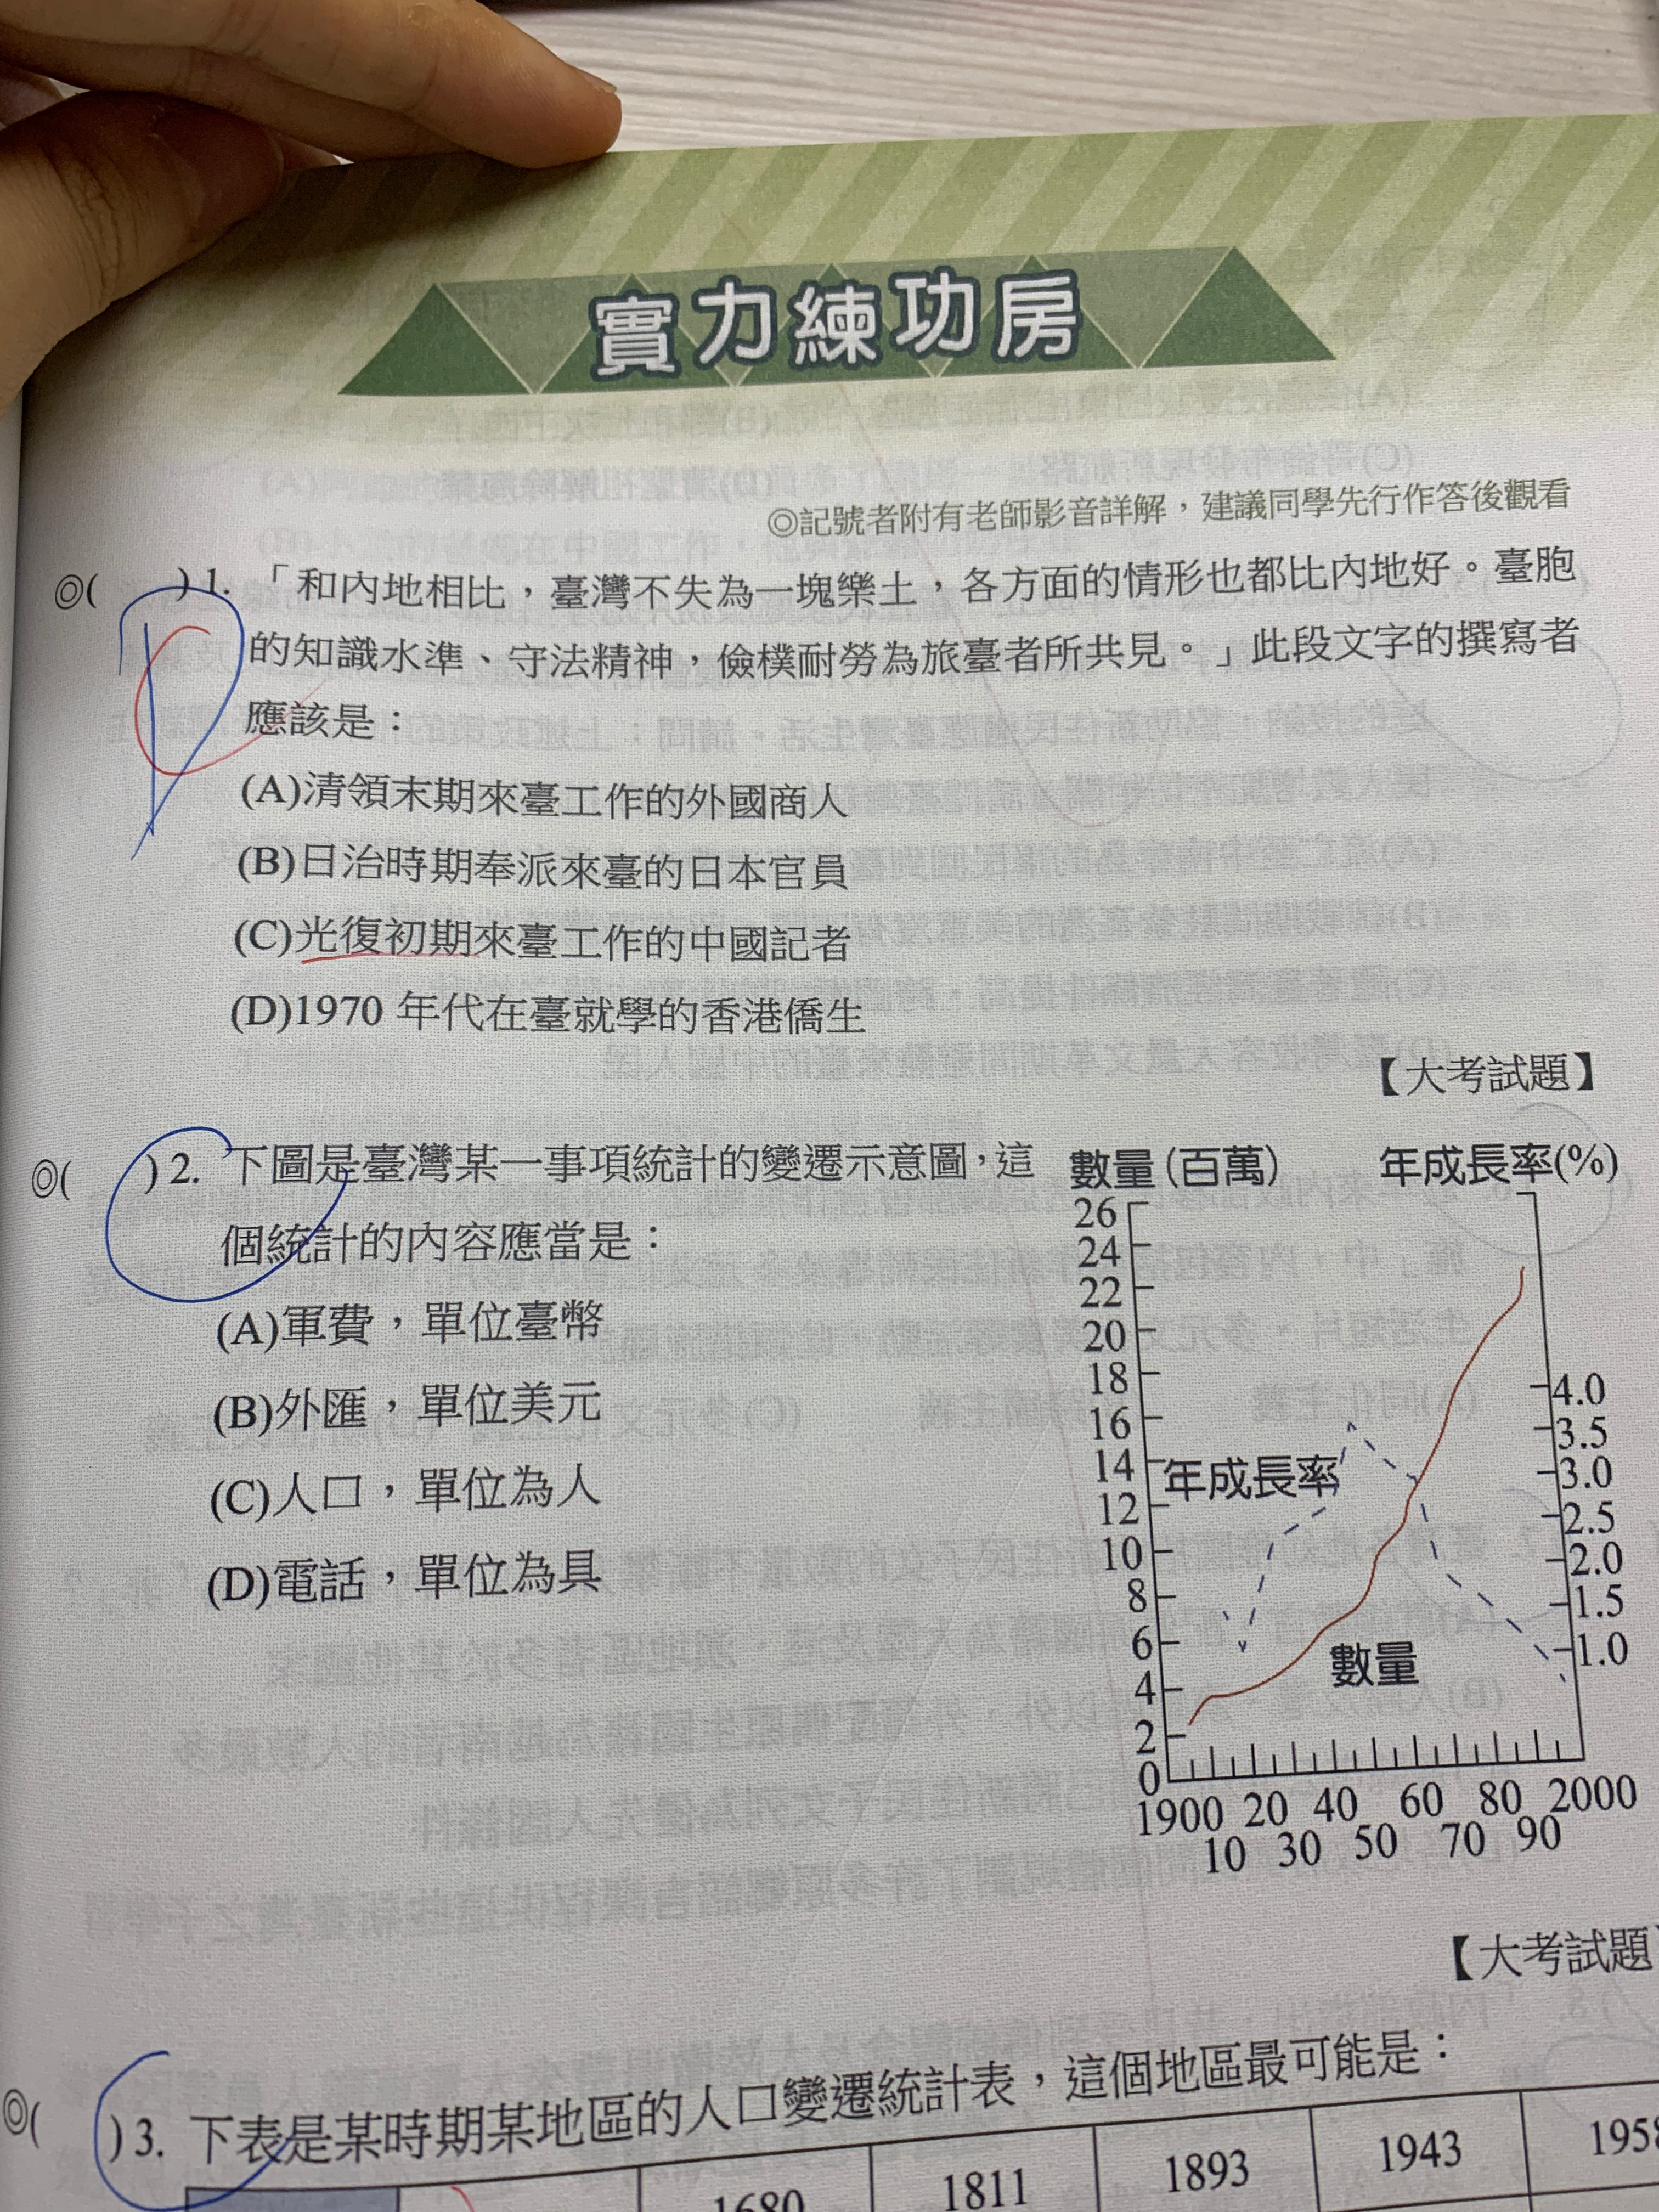 實力練功房
◎記號者附有老師影音詳解，建議同學先行作答後觀看
◎(　　)1.「和內地相比，臺灣不失為一塊樂土，各方面的情形也都比內地好。臺胞
的知識水準、守法精神，儉樸耐勞為旅臺者所共見。」此段文字的撰寫者
應該是：
(A)清領末期來臺工作的外國商人
(B)日治時期奉派來臺的日本官員
(C)光復初期來臺工作的中國記者
(D)1970 年代在臺就學的香港僑生
【大考試題】
◎(　　)2. 下圖是臺灣某一事項統計的變遷示意圖，這
個統計的內容應當是：
(A)軍費，單位臺幣
(B)外匯，單位美元
(C)人口，單位為人
(D)電話，單位為具
數量(百萬) 年成長率(%)
26
24
22
20
18
16
14
12
10
8
6
4
2
0
4.0
3.5
3.0
2.5
2.0
1.5
1.0
年成長率
數量
1900 20 40 60 80 2000
10 30 50 70 90
【大考試題】
◎(　　)3. 下表是某時期某地區的人口變遷統計表，這個地區最可能是：
1680 1811 1893 1943 1958